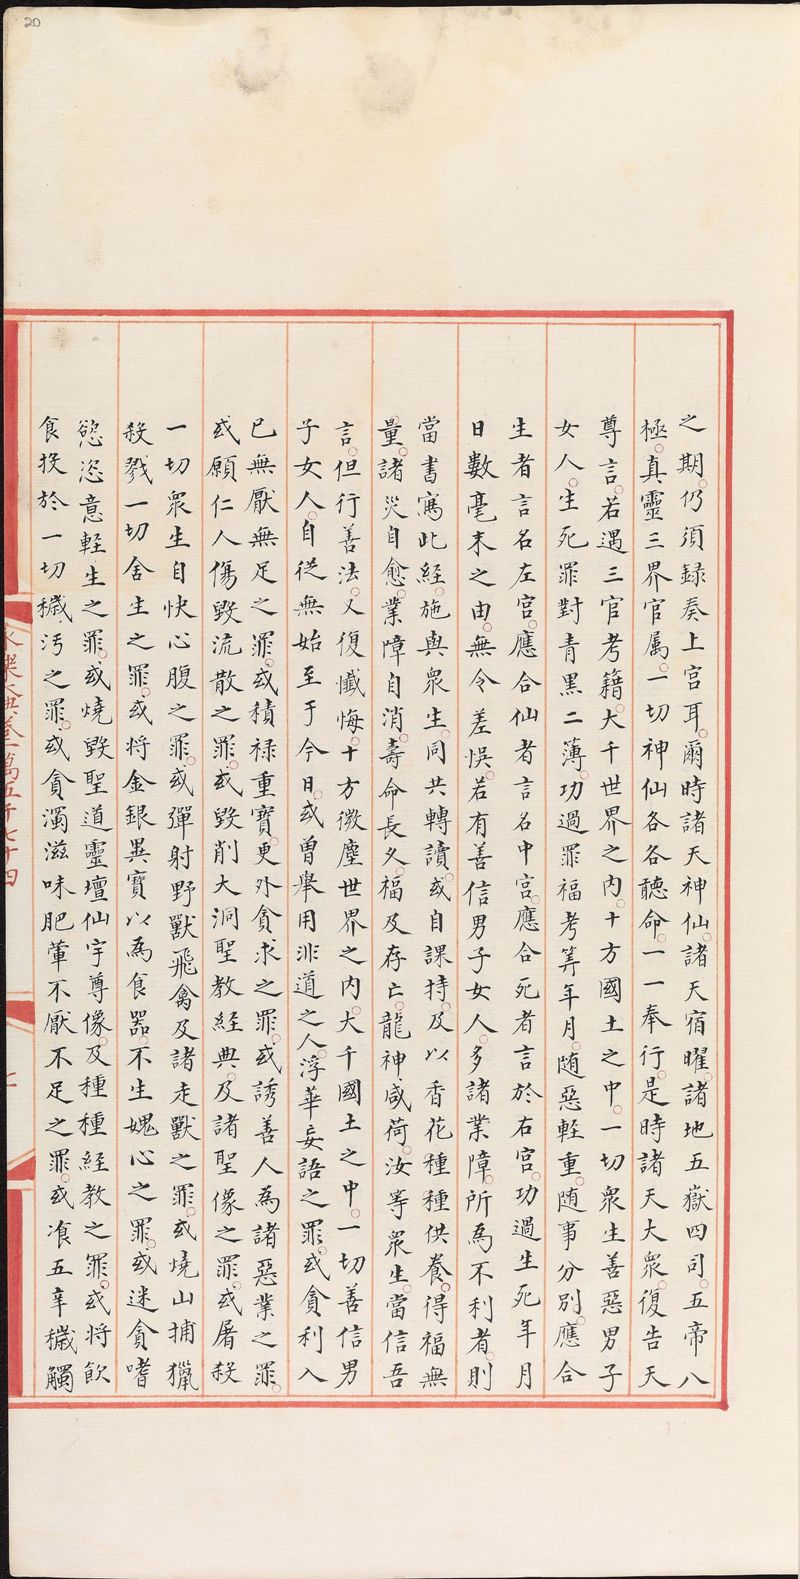 20
之期。仍須録奏上宫耳。爾時諸天神仙。諸天宿曜。諸地五嶽四司。五帝八
極。真靈三界官属。一切神仙各各聽命。一一奉行。是時諸天大衆。復告天
尊言。若遇三官考籍。大千世界之内。十方國土之中。一切衆生善惡男子
女人。生死罪對青黑二薄。功過罪福考筭年月。随惡輕重。随事分別。應合
生者言名左宫。應合仙者言名中宫。應合死者言於右宫。功過生死年月
日數毫末之由。無令差悮。若有善信男子女人。多諸業障。所為不利者。則
當書寫此經。施與衆生。同共轉讀。或自課持。及以香花種種供養。得福無
量。諸災自愈。業障自消。壽命長久。福及存亡。龍神咸荷。汝等衆生。當信吾
言。但行善法。又復懺悔。十方微塵世界之内。大千國土之中。一切善信男
子女人。自從無始至于今日。或曾舉用非道之人。浮華妄語之罪。或貪利入
已無厭無足之罪。或積禄重寶。更外貪求之罪。或誘善人為諸惡業之罪。
或願仁人傷毀流散之罪。或毀削大洞聖教經典。及諸聖像之罪。或屠殺
一切衆生自快心腹之罪。或彈射野獸飛禽及諸走獸之罪。或燒山捕獵
殺戮一切含生之罪。或将金銀異寶以為食器。不生媿心之罪。或迷貪嗜
慾恣意輕生之罪。或燒毀聖道靈壇仙宇尊像。及種種經教之罪。或将飲
食投於一切穢汚之罪。或貪濁滋味肥葷不厭不足之罪。或飡五辛穢觸
永樂大典卷一萬五千七十四